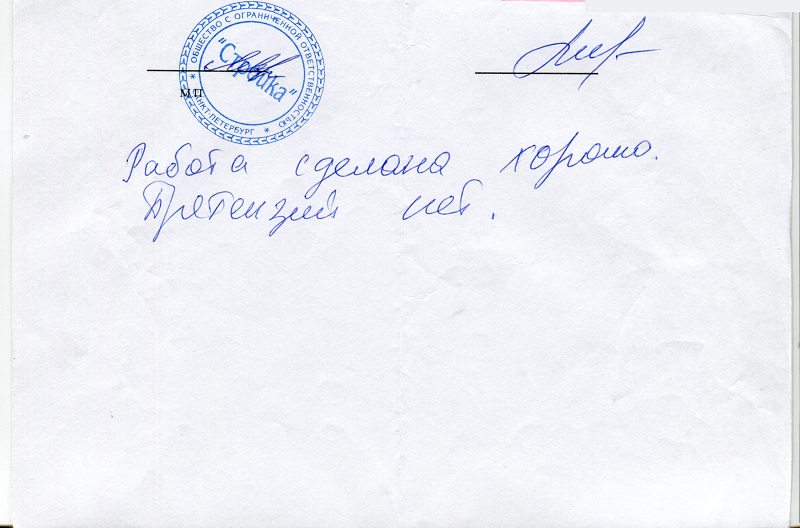 * ОБЩЕСТВО С ОГРАНИЧЕННОЙ ОТВЕТСТВЕННОСТЬЮ *
САНКТ-ПЕТЕРБУРГ
"Стройка"
МП
Работа сделана хорошо.
Претензий нет.